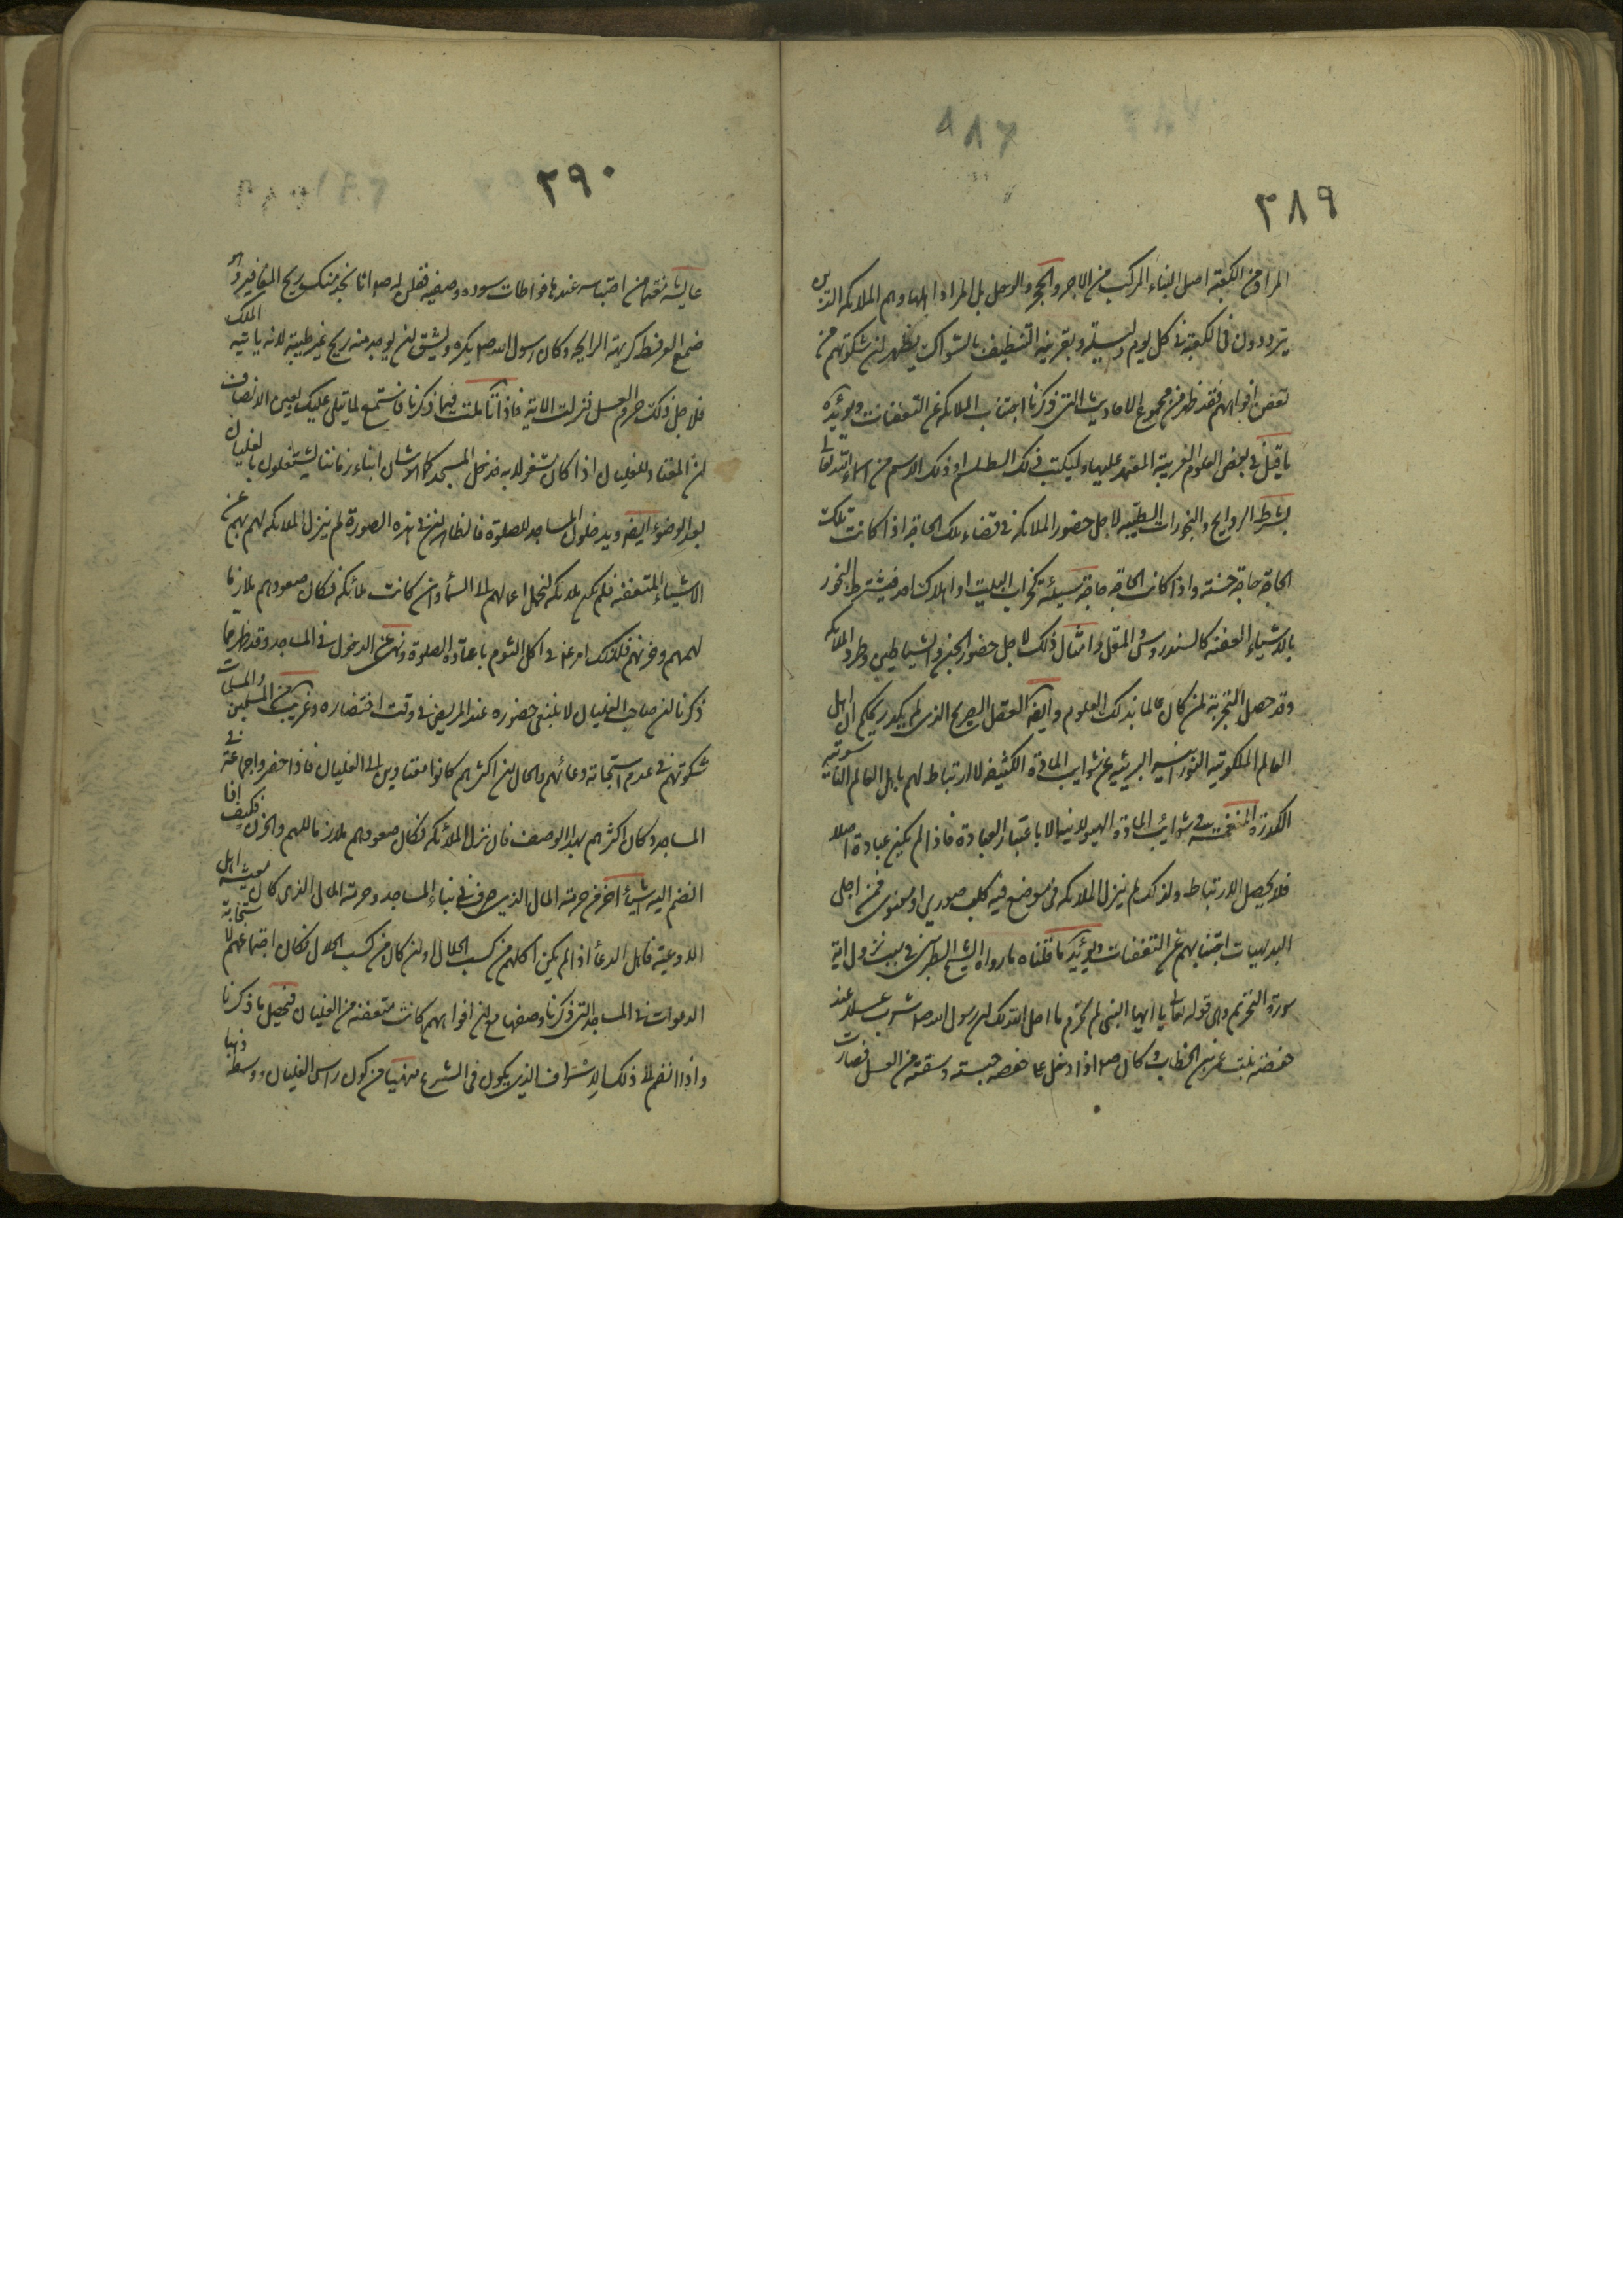 ٢٨٩
المراد من الكعبة اصل البناء المركب من الاجر والحجر والوحل بل المراد اهلها وهم الملائكة الذين
يترددون فى الكعبة فى كل يوم وليلة وبقرينة التنظيف بالسواك يظهر ان شكوتهم من
تعفن افواههم فقد ظهر من مجموع الاحاديث التى ذكرنا اجتناب الملائكة عن التعفنات ويؤيده
ما قيل فى بعض العلوم الغريبة المعتمد عليها وليكتب ذلك الطلسم او ذلك الاسم من اسماء الله تعالى
بشرط الروايح والبخورات الطيبة لاجل حضور الملائكة فى قضاء تلك الحاجة اذا كانت تلك
الحاجة حاجة حسنة واذا كانت الحاجة حاجة سيئة كخراب البيت او اهلاك احد فيشترط البخور
بالاشياء العفنة كالسندروس والمقل وامثال ذلك لاجل حضور الجن والشياطين وطرد الملائكة
وقد حصل التجربة لمن كان عالما بذلك العلوم وايضا العقل الصريح الذى لم يكدر يحكم ان اهل
العالم الملكوتية النورانية البريئة عن شوايب المادة الكثيفة لا ارتباط لهم باهل العالم الناسوتية
الكدرة المنغمسة فى شوائب المادة الهيولانية الا باعتبار العبادة فاذا لم يكن عبادة اصلا
فلا يحصل الارتباط ولذلك لم ينزل الملائكة فى موضع فيه كلب صورى او معنوى فمن اجلى
البديهيات اجتنابهم عن التعفنات ويؤيد ما قلناه ما رواه الشيخ الطبرسى فى سبب نزول اية
سورة التحريم وهى قوله تعالى يا ايها النبى لم تحرم ما احل الله لك ان رسول الله ص شرب عسلا عند
حفصة بنت عمر بن الخطاب وكان ص اذا دخل على حفصة حبسته وسقته من العسل فصارت
٢٩٠
عايشة من احتباسه عندها فواطات سودة وصفية فقلن له ص انا نجد منك ريح المغافير وهو
ضمع العرفط كريهة الرايحة وكان رسول الله ص يكره ويشق ان يوجد منه ريح غير طيبة لانه ياتيه الملك
فلاجل ذلك حرم العسل فنزلت الاية فاذا تاملت فيما ذكرنا فاستمع لما يتلى عليك بعين الانصاف
ان المعتاد للغليان اذا كان شغولا به فدخل المسجد كما هو شان ابناء زماننا يشتغلون بالغليان
بعد الوضوء ايضا ويدخلون المساجد للصلوة فالظاهر ان فى هذه الصورة لم ينزل الملائكة لهم عن
الاشياء المتعفنة فلم يكن ملائكة لتحمل اعمالهم الى السماء وان كانت ملائكة فكان صعودهم ملازما
لهمهم وحزنهم فلذلك امر فى اكل الثوم باعادة الصلوة ونهى عن الدخول فى المساجد وقد ظهر مما
ذكرنا ان صاحب الغليان لا ينبغى حضوره عند المريض فى وقت احتضاره وغريب من المسلمين والمسلمات
شكوتهم فى عدم استجابة دعائهم والحال ان اكثرهم كانوا معتادين الى الغليان فاذا حضروا جماعة فى
المساجد وكان اكثرهم بهذا الوصف فان نزل الملائكة فكان صعودهم ملازما للهم والحزن فكيف اذا
انضم اليه شيئا اخر من حرمة المال الذى صرف فى بناء المساجد وحرمة المال الذى كان معيشة اهل
الادعية فاهل الدعاء اذا لم يكن اكلهم من كسب الحلال وان كان من كسب الحلال فكان اجتماعهم لاستجابة
الدعوات فى المساجد التى ذكرنا وصفها مع ان افواههم كانت متعفنة من الغليان فيحصل ما ذكرنا
واذا انضم الى ذلك الاشراف الذى يكون فى الشرع منهيا من كون راس الغليان ووسطه ذهبا